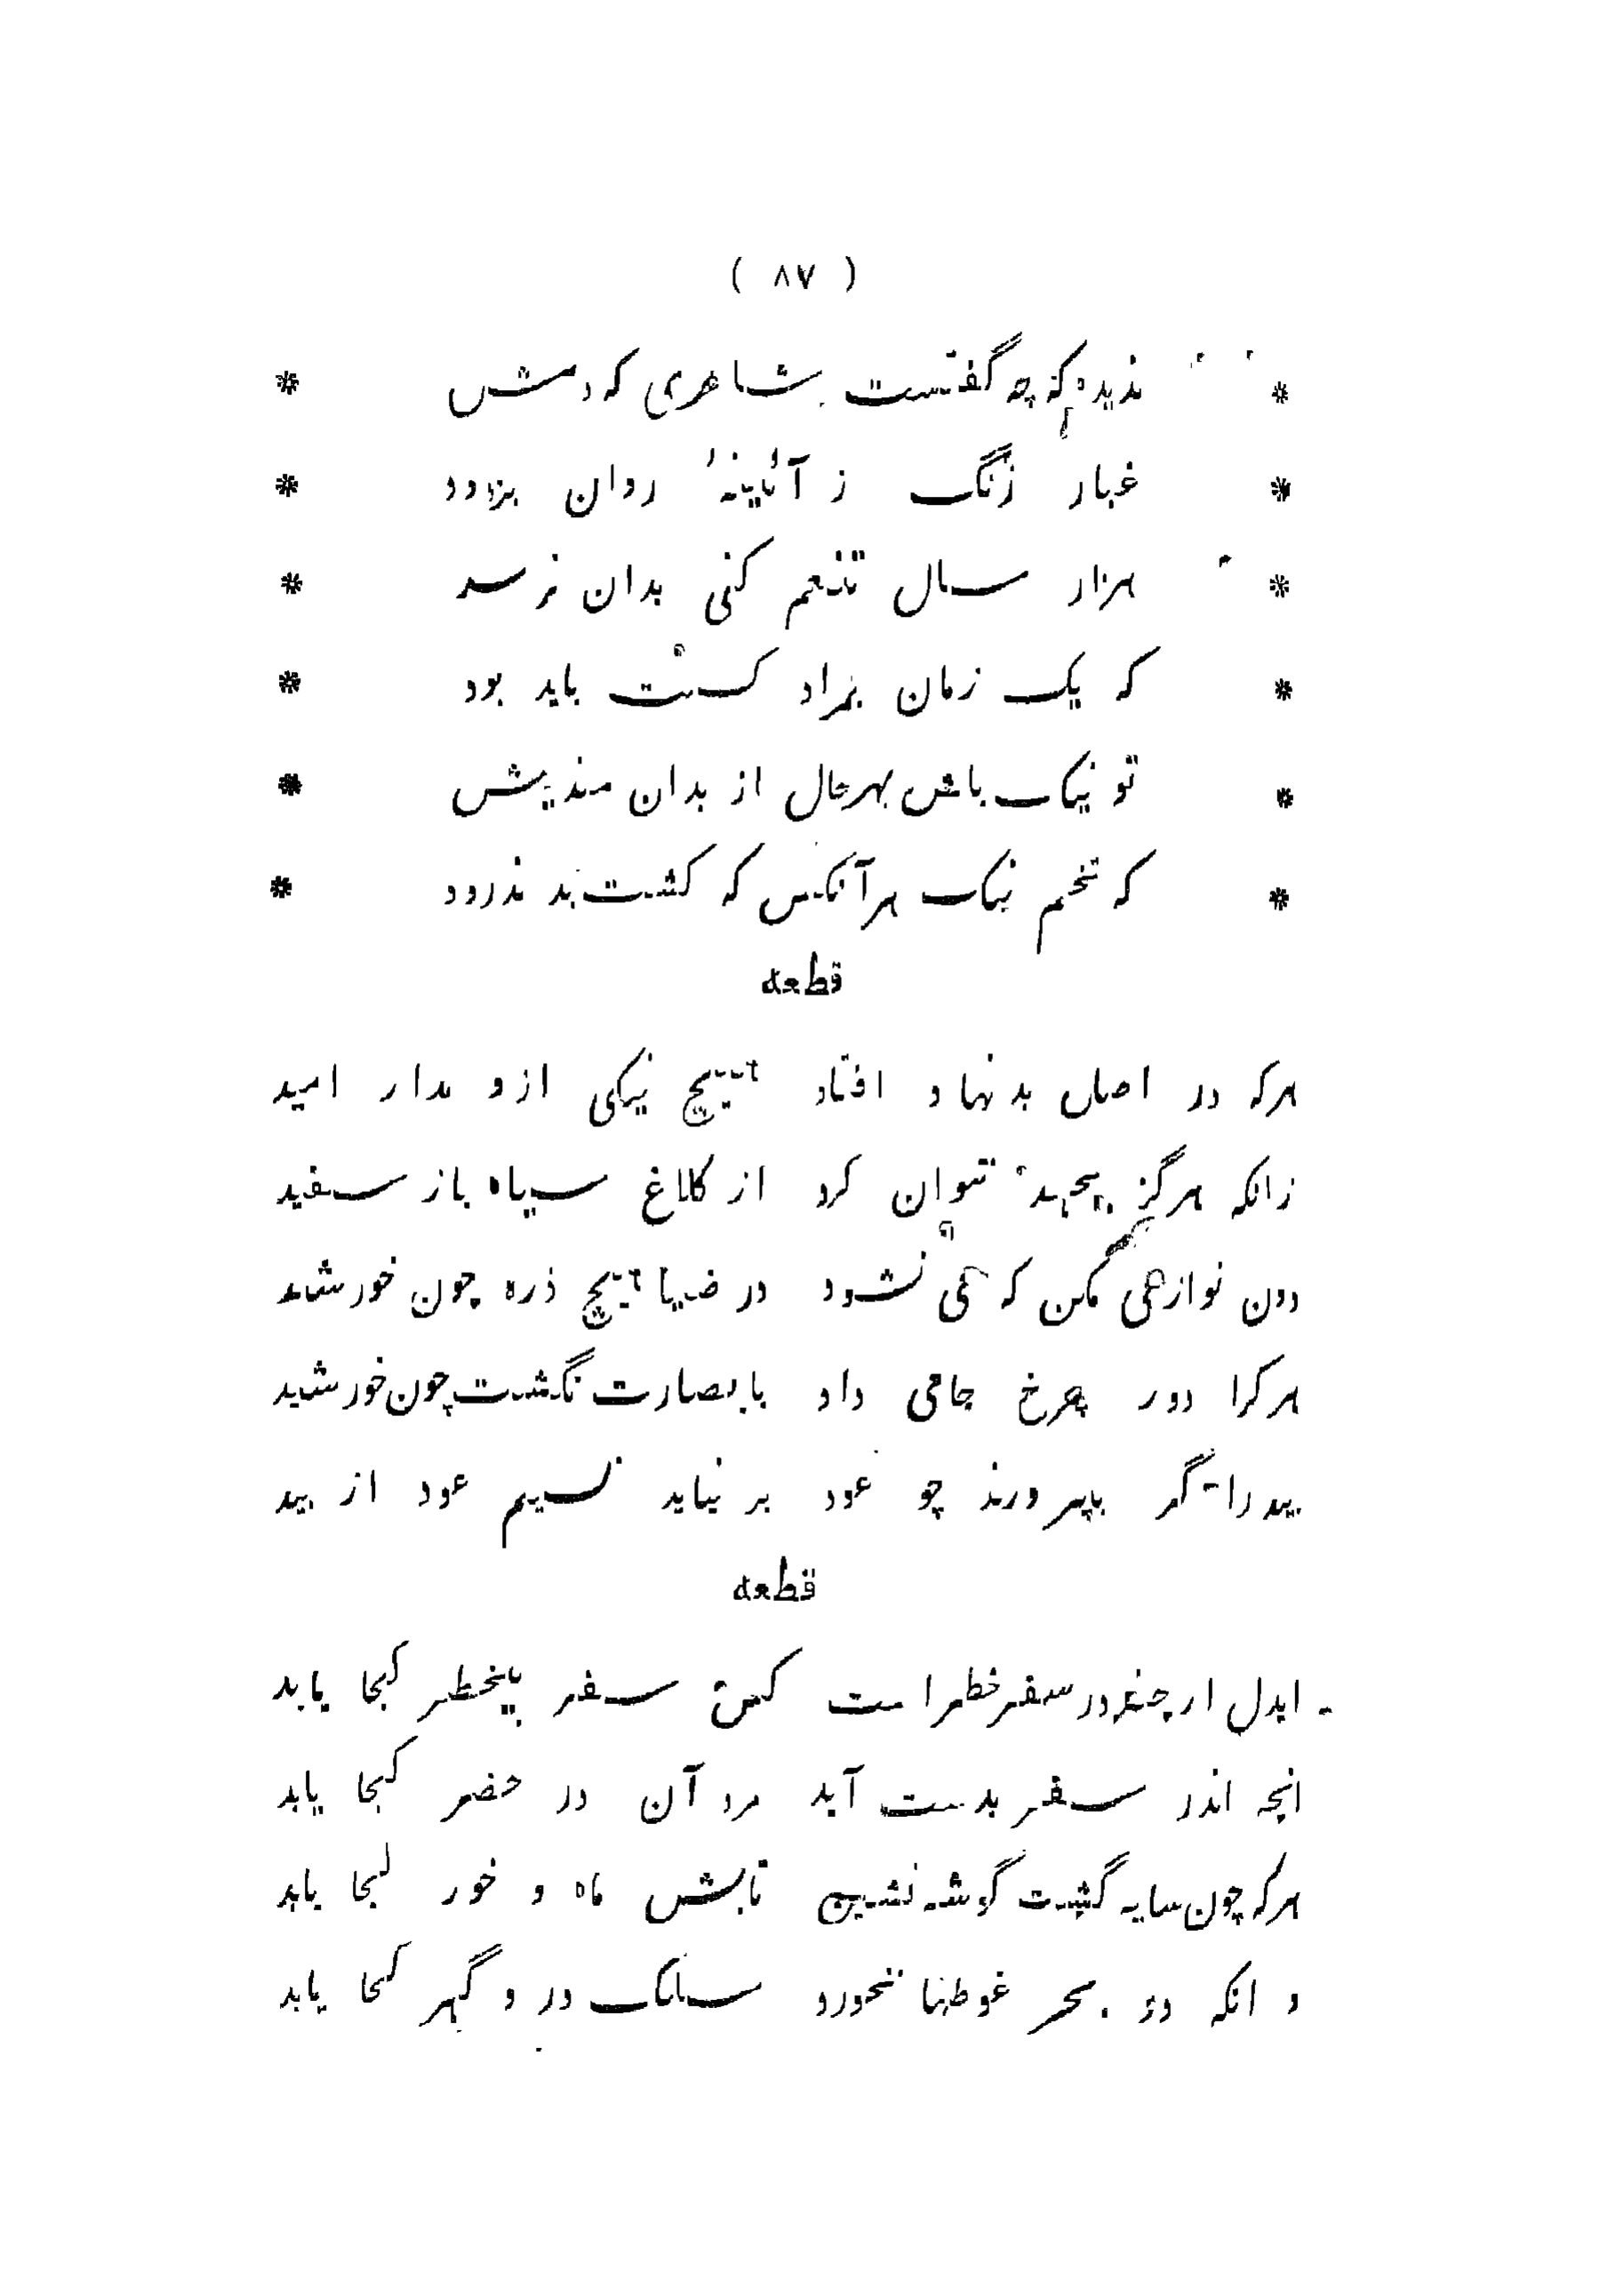 ( ۸۷ )
* ندیدهٔ که چه گفتست شاعری که دمش *
* غبار زنگ ز آئینهٔ روان بزدود *
* هزار سال تنعم کنی بدان نرسد *
* که یک زمان بمراد کست باید بود *
* تو نیک باش بهرحال از بدان مندیش *
* که تخم نیک هرآنکس که کشت بد ندرود *
قطعه
هرکه در اصل بد نهاد افتاد هیچ نیکی ازو مدار امید
زانکه هرگز بجهد نتوان کرد از کلاغ سیاه باز سفید
دون نوازی مکن که می نشود در ضیا هیچ ذره چون خورشید
هرکرا دور چرخ جامی داد با بصارت نگشت چون خورشید
بید را گر بپرورند چو عود بر نیاید نسیم عود از بید
قطعه
ایدل ار چند در سفر خطر است کس سفر بیخطر کجا یابد
انچه اندر سفر بدست آید مرد آن در حضر کجا یابد
هرکه چون سایه گشت گوشه نشین تابش ماه و خور کجا یابد
و انکه در بحر غوطها نخورد سلک در و گهر کجا یابد